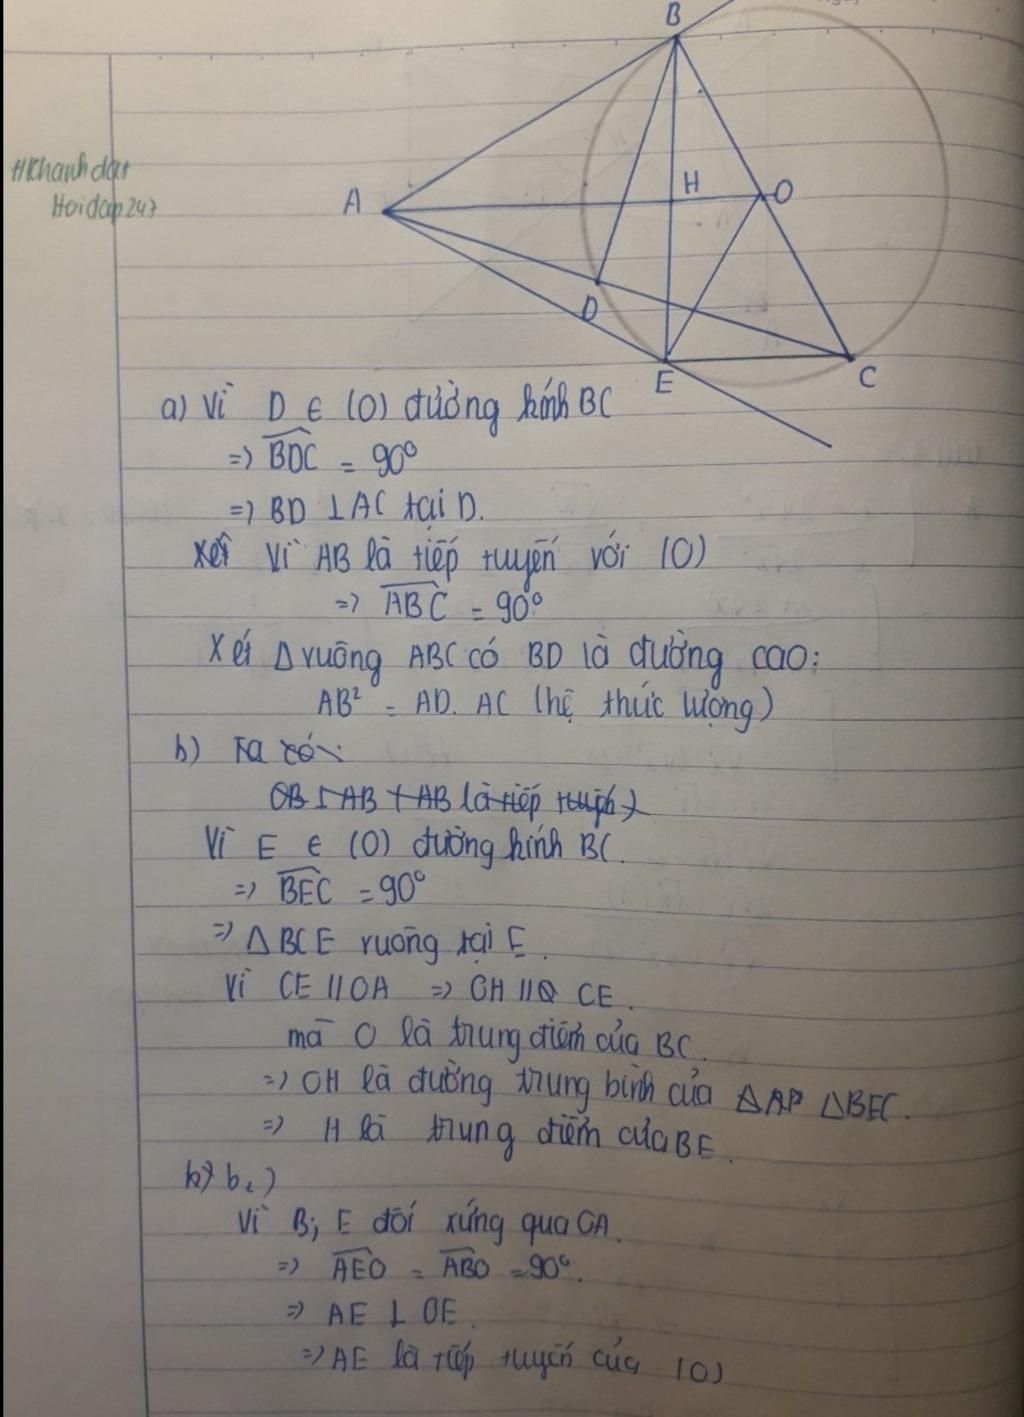 #Khanh dat
Hoidap247
B
A
H
O
D
E
C
a) Vì D ∈ (O) đường kính BC
=> \widehat{BDC} = 90°
=> BD ⊥ AC tại D.
Xét Vì AB là tiếp tuyến với (O)
=> \widehat{ABC} = 90°
Xét Δ vuông ABC có BD là đường cao:
AB² = AD. AC (hệ thức lượng)
b) Ta có:
OB ⊥ AB + AB là tiếp tuyến)
Vì E ∈ (O) đường kính BC.
=> \widehat{BEC} = 90°
=> Δ BCE vuông tại E.
Vì CE // OA => OH // CE.
mà O là trung điểm của BC.
=> OH là đường trung bình của ΔBEC.
=> H là trung điểm của BE.
b₂)
Vì B; E đối xứng qua OA.
=> \widehat{AEO} = \widehat{ABO} = 90°.
=> AE ⊥ OE.
=> AE là tiếp tuyến của (O)